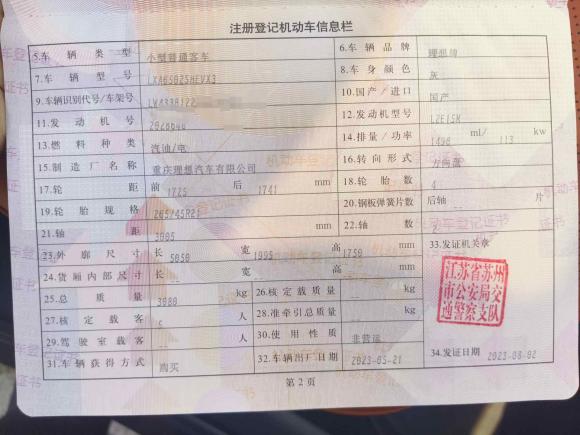 注册登记机动车信息栏
5.车辆类型 小型普通客车 6.车辆品牌 理想牌
7.车辆型号 LXA6502SHEVX3 8.车身颜色 灰
9.车辆识别代号/车架号 LW433B122 10.国产/进口 国产
11.发动机号 12.发动机型号 L2E15M
13.燃料种类 汽油/电 14.排量/功率 1496 ml/ 113 kw
15.制造厂名称 重庆理想汽车有限公司 16.转向形式 方向盘
17.轮距 前 1725 后 1741 mm 18.轮胎数 4
19.轮胎规格 265/45R21 20.钢板弹簧片数 后轴 -- 片
21.轴距 3005 mm 22.轴数 2
23.外廓尺寸 长 5050 宽 1995 高 1750 mm 33.发证机关章
24.货厢内部尺寸 长 -- 宽 -- 高 -- mm
25.总质量 3080 kg 26.核定载质量 -- kg
27.核定载客 5 人 28.准牵引总质量 -- kg
29.驾驶室载客 -- 人 30.使用性质 非营运
31.车辆获得方式 购买 32.车辆出厂日期 2023-05-21 34.发证日期 2023-08-02
江苏省苏州
市公安局交
通警察支队
第2页